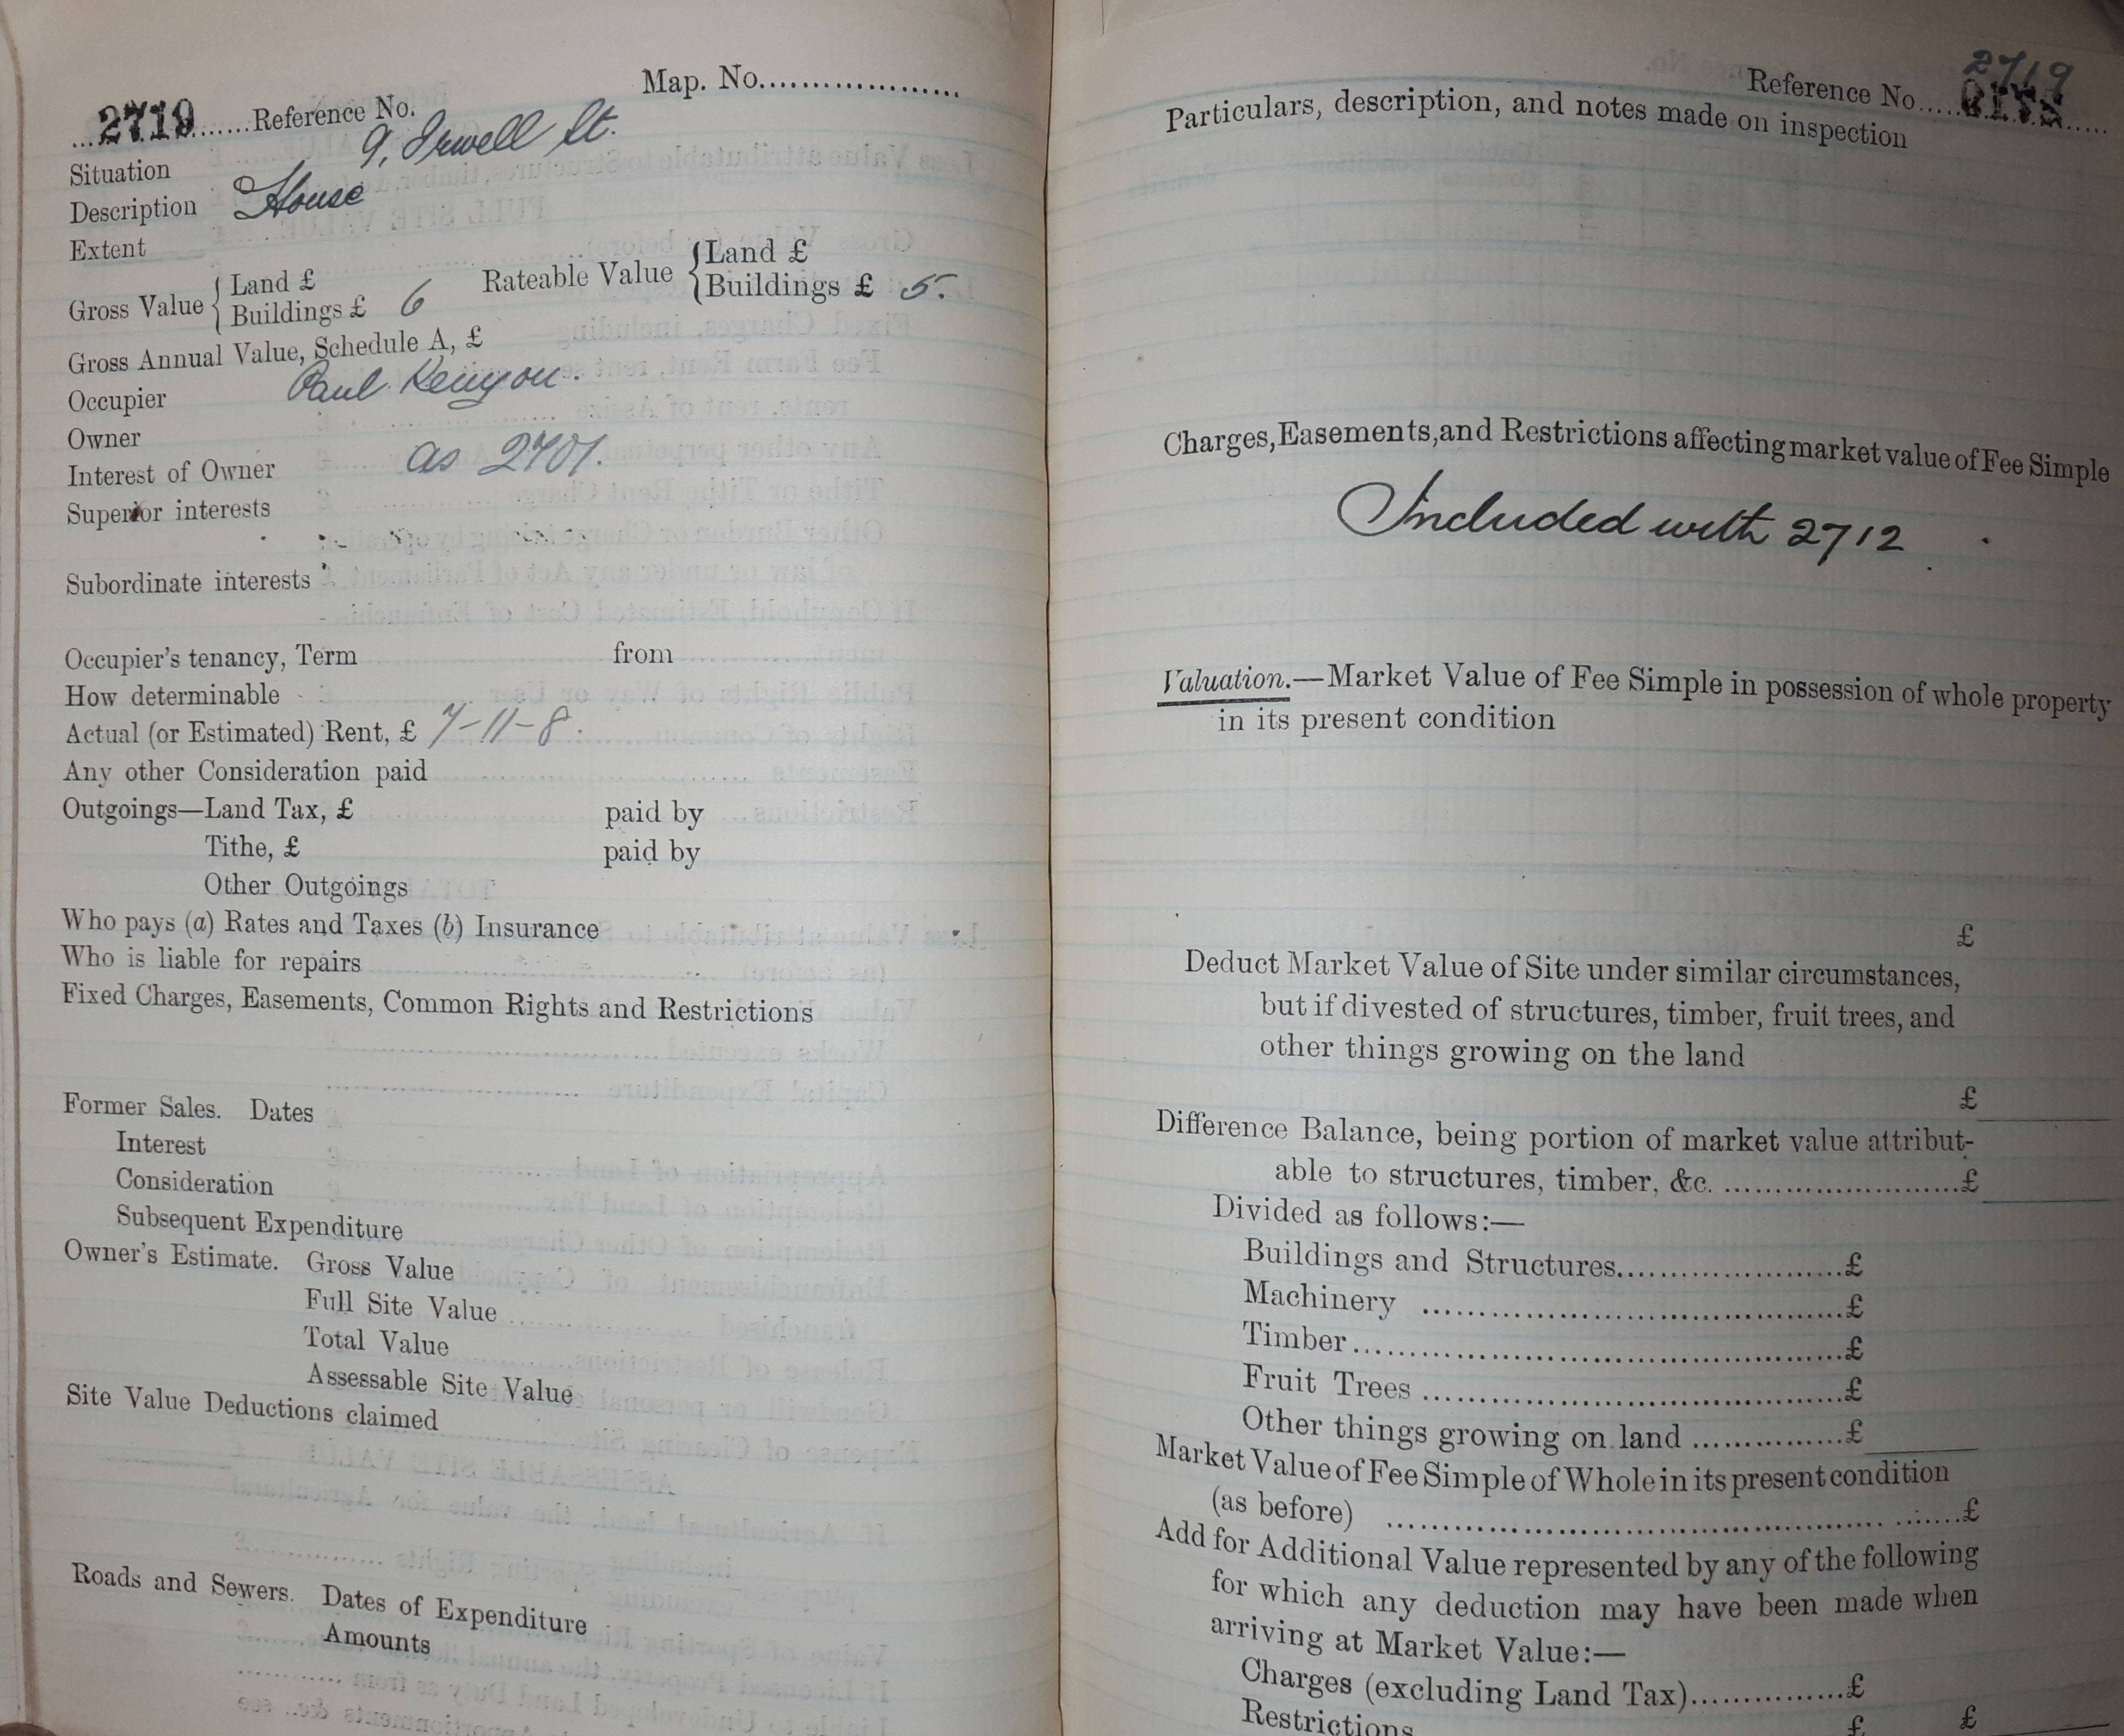 Map. No...................
2719 ........Reference No.
Situation 9, Irwell St.
Description House
Extent
Gross Value { Land £
Buildings £ 6
Rateable Value { Land £
Buildings £ 5.
Gross Annual Value, Schedule A, £
Occupier Paul Kenyon.
Owner
Interest of Owner as 2701.
Superior interests
Subordinate interests
Occupier's tenancy, Term from
How determinable
Actual (or Estimated) Rent, £ 7-11-8.
Any other Consideration paid
Outgoings—Land Tax, £ paid by
Tithe, £ paid by
Other Outgoings
Who pays (a) Rates and Taxes (b) Insurance
Who is liable for repairs
Fixed Charges, Easements, Common Rights and Restrictions
Former Sales. Dates
Interest
Consideration
Subsequent Expenditure
Owner's Estimate. Gross Value
Full Site Value
Total Value
Assessable Site Value
Site Value Deductions claimed
Roads and Sewers. Dates of Expenditure
Amounts
Reference No. 2719
Particulars, description, and notes made on inspection
Charges, Easements, and Restrictions affecting market value of Fee Simple
Included with 2712
Valuation.—Market Value of Fee Simple in possession of whole property
in its present condition
£
Deduct Market Value of Site under similar circumstances,
but if divested of structures, timber, fruit trees, and
other things growing on the land
£
Difference Balance, being portion of market value attribut-
able to structures, timber, &c. ........................£
Divided as follows:—
Buildings and Structures.......................£
Machinery ..........................................£
Timber.................................................£
Fruit Trees ..........................................£
Other things growing on land ...............£
Market Value of Fee Simple of Whole in its present condition
(as before) ..................................................£
Add for Additional Value represented by any of the following
for which any deduction may have been made when
arriving at Market Value:—
Charges (excluding Land Tax)...............£
Restrictions £ £